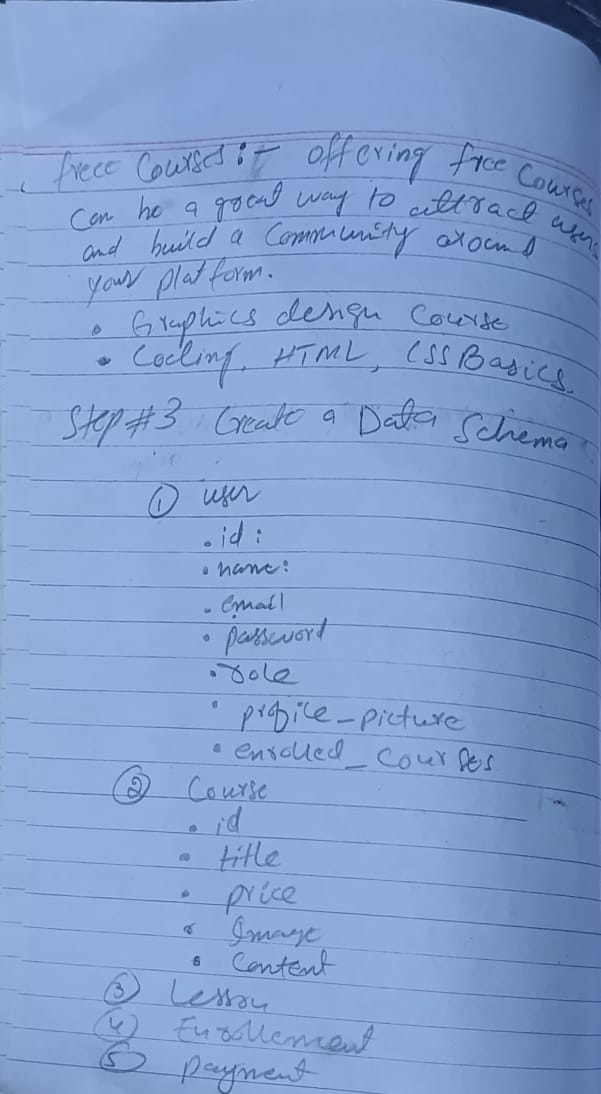 free Courses :- offering free Courses
Can be a good way to attract users
and build a Community around
your platform.
• Graphics design Course
• Coding, HTML, CSS Basics.
Step #3 Create a Data Schema
① user
• id :
• name :
• email
• password
• role
• profile_picture
• enrolled_courses
② Course
• id
• title
• price
• Image
• Content
③ Lesson
④ Enrollement
⑤ payment